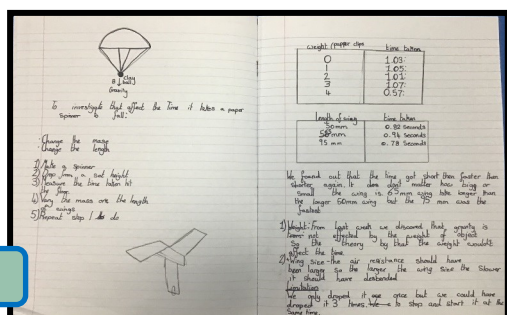 Clay
ball
Gravity
To investigate that affect the Time it takes a paper
spinner to fall:
Change the mass
Change the length
1) Make a spinner
2) Drop from a set height
3) Measure the time taken hit
the floor
4) Vary the mass or the length
of wings
5) Repeat step 1 do
weight / paper clips time taken
0 1.03:
1 1.05:
2 1.01:
3 1.07:
4 0.57:
length of wing time taken
50mm 0.82 Seconds
mm 0.94 Seconds
95 mm 0.78 Seconds
We found out that the time got short then faster than
shorter again. It does dont matter how long or
small the wing is 65mm wing take longer than
the longer 60mm wing but the 95 mm was the
fastest
1) Weight: From last week we discovered that gravity is
not effected by the weight of object
So the theory by that the weight wouldnt
affect the time.
2) Wing size - the air resistance should have
been larger so the larger the wing size the slower
it should have descended
We only droped it once but we could have
droped it 3 times. to stop and start it at the
Same time.